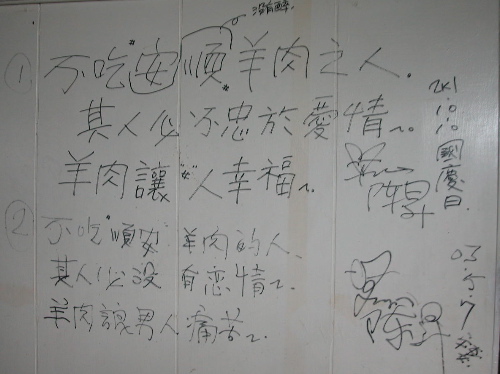 沒有醉
① 不吃"安順"羊肉之人.
其人必不忠於愛情~.
羊肉讓"女"人幸福~.
2K1
10.10.
國慶日.
陳昇
② 不吃"順安"羊肉的人.
其人必没有恋情~.
羊肉讓男人痛苦~.
03.5.7
陳昇